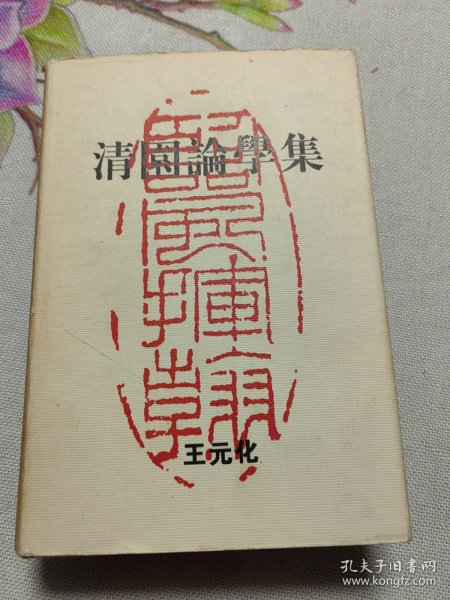 清園論學集
王元化
孔夫子旧书网
www.kongfz.com